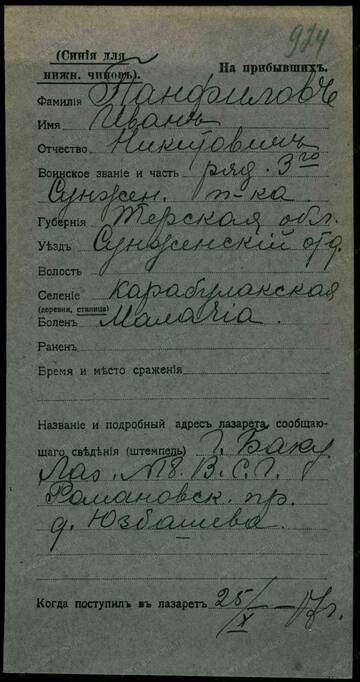 924
(Синія для нижн. чиновъ).
На прибывшихъ.
Фамилія Панфиловъ
Имя Иванъ
Отчество Никитовичъ
Воинское званіе и часть ряд. 3го
Сунжен. п-ка
Губернія Терская обл.
Уѣздъ Сунженскій отд.
Волость
Селеніе Карабулакская
(деревня, станица)
Боленъ Малярія.
Раненъ
Время и мѣсто сраженія
Названіе и подробный адресъ лазарета, сообщаю-
щаго свѣдѣнія (штемпель) Г. Баку
Лаз. №8. В.С.Г.
Романовск. пр.
д. Юзбашева.
Когда поступилъ въ лазаретъ 25/X – 17 г.